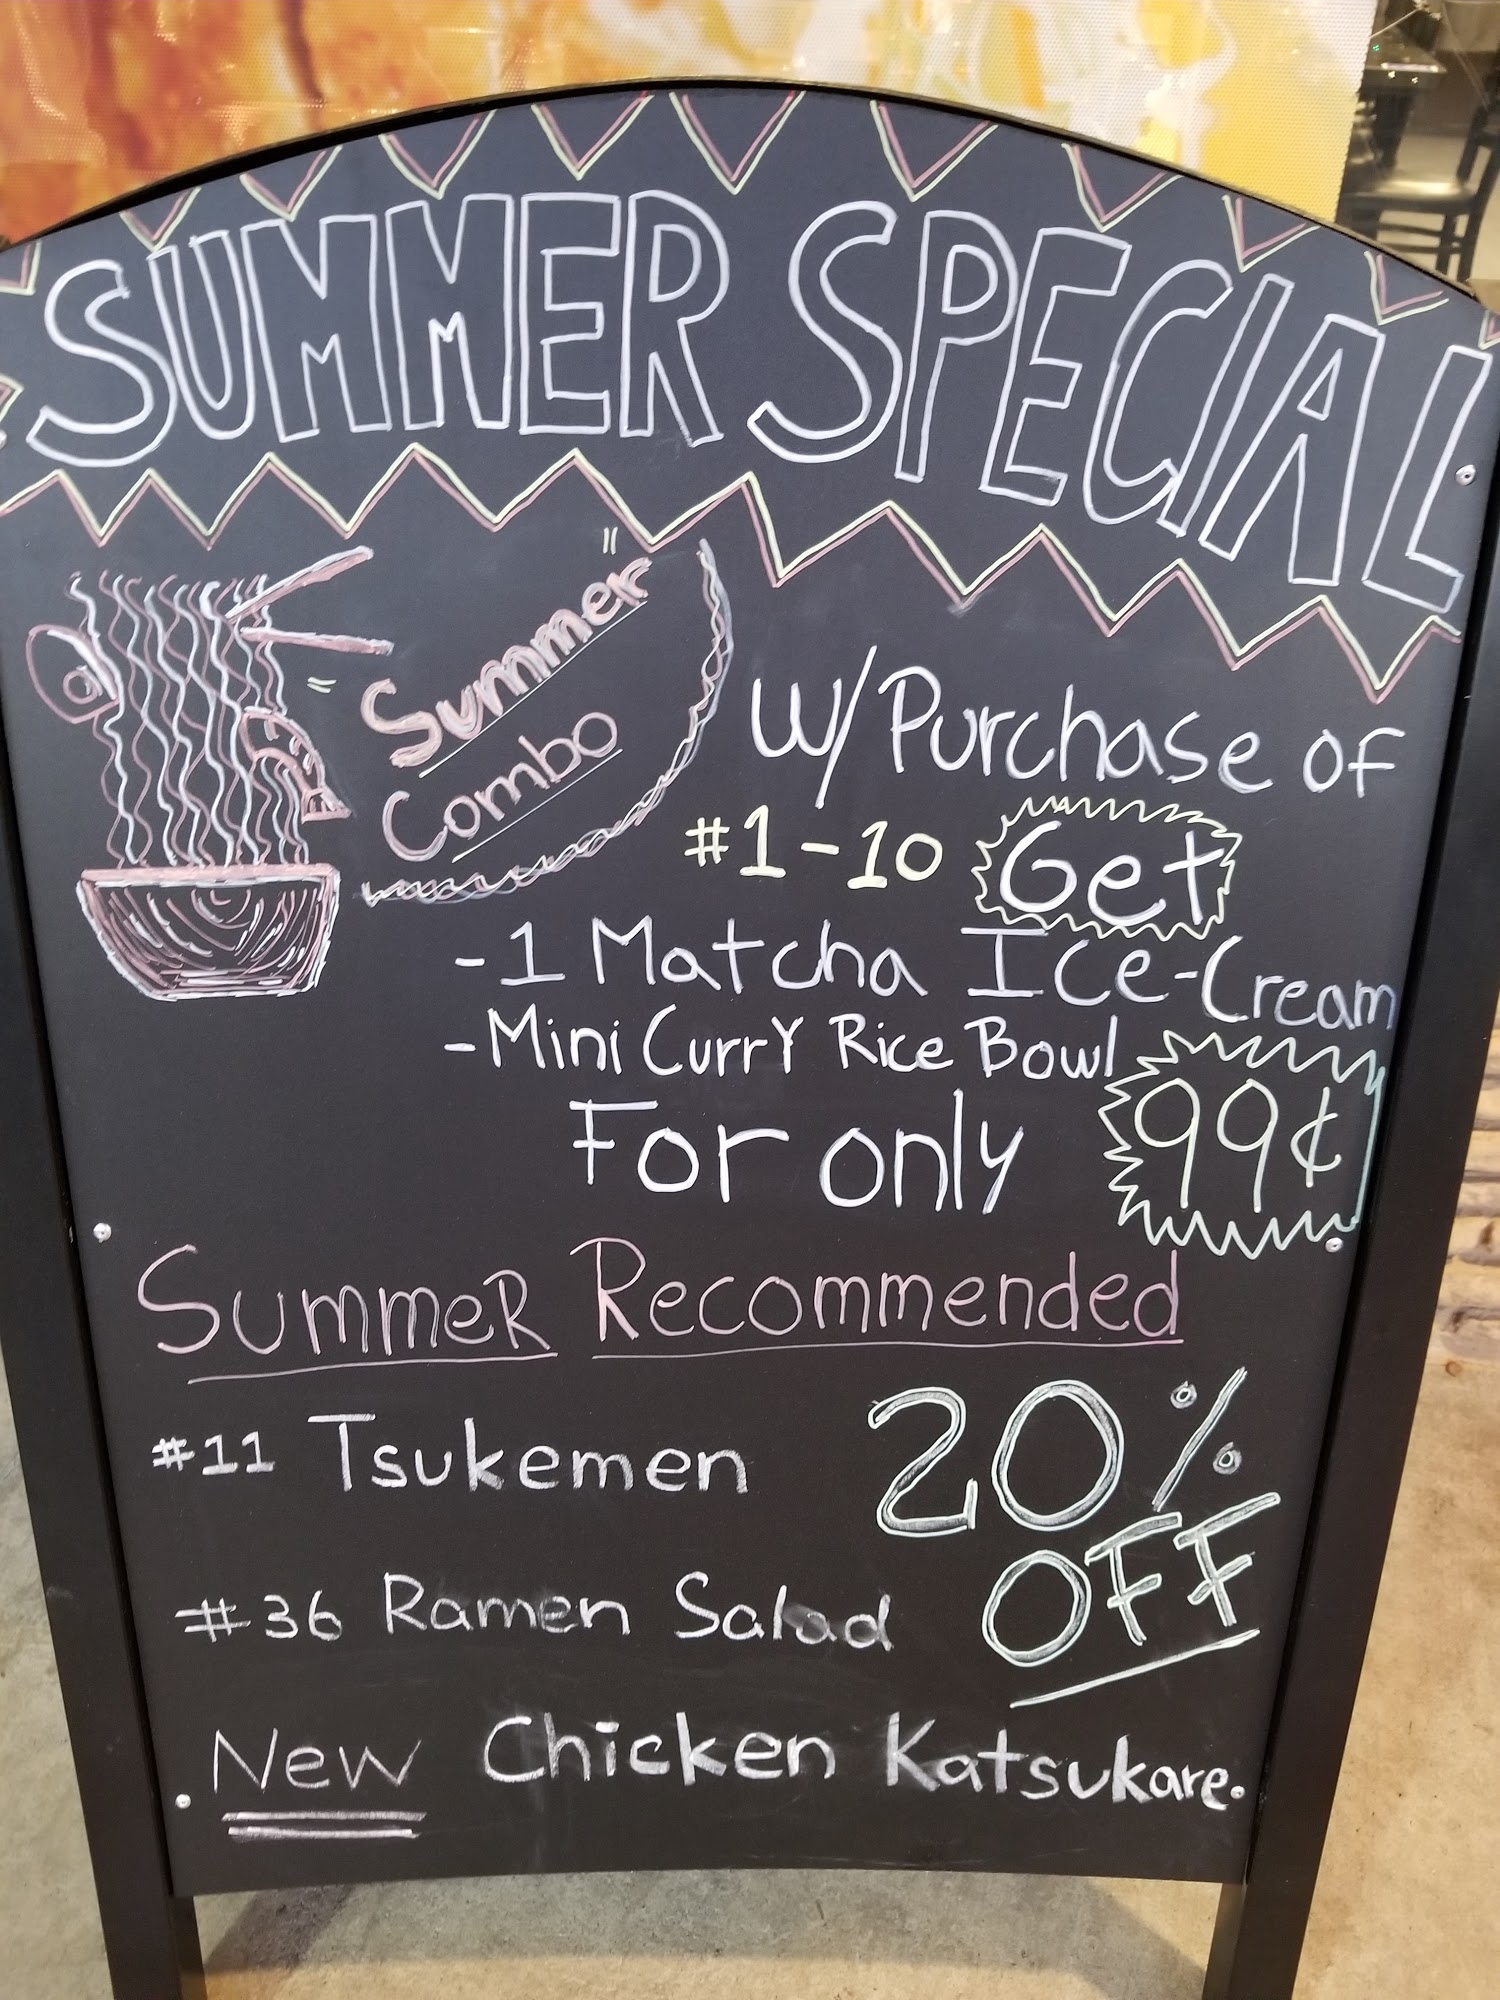 SUMMER SPECIAL
Summer
Combo
W/ Purchase of
#1-10 Get
-1 Matcha Ice-Cream
-Mini Curry Rice Bowl
For only 99¢
Summer Recommended
#11 Tsukemen 20%
OFF
#36 Ramen Salad
New Chicken Katsukare.